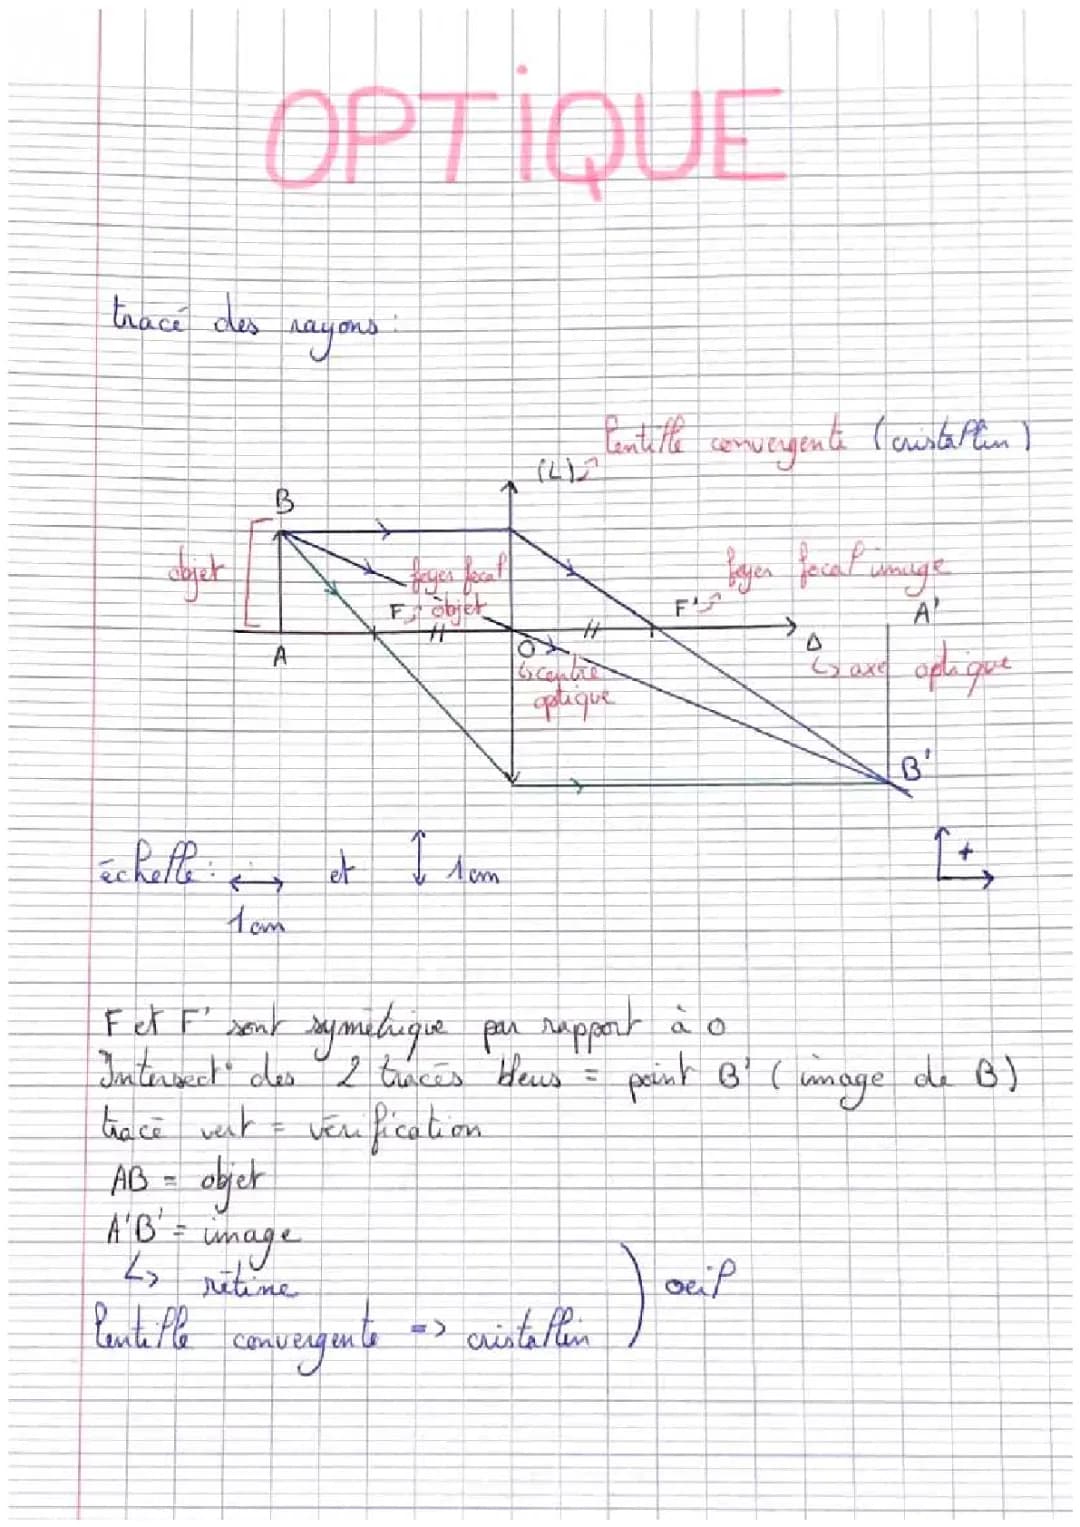 OPTIQUE
tracé des rayons :
lentille convergente (cristallin)
(L)
B
objet
foyer focal
objet
F
foyer focal image
F'
A'
A
O
centre
optique
Δ
axe optique
B'
échelle : 1cm et 1cm
+
F et F' sont symétrique par rapport à O
Intersect° des 2 tracés bleus = point B' (image de B)
tracé vert = vérification
AB = objet
A'B' = image
↳ rétine
lentille convergente => cristallin
oeil